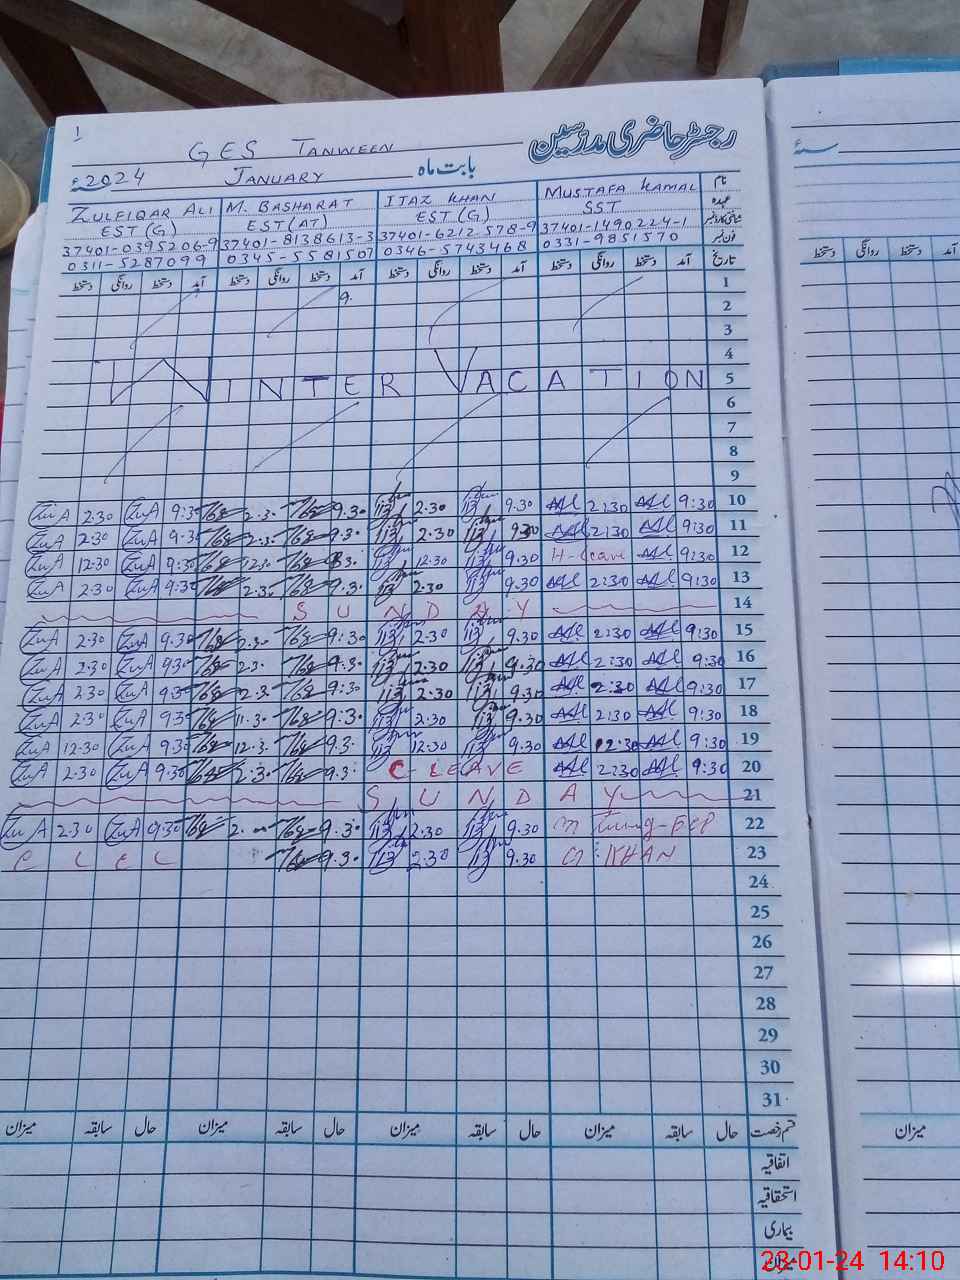 1
GES TANWEEN رجسٹر حاضری مدرسین
2024ء JANUARY بابت ماہ
ZULFIQAR ALI M. BASHARAT IJAZ KHAN MUSTAFA KAMAL نام
EST(G) EST(AT) EST(G) SST عہدہ
37401-0395206-9 37401-8138613-3 37401-6212578-9 37401-1490224-1
0311-5287099 0345-5581507 0346-5743468 0331-9851570 فون نمبر
دستخط روانگی دستخط آمد دستخط روانگی دستخط آمد دستخط روانگی دستخط آمد دستخط روانگی دستخط آمد تاریخ
1
9. 2
3
4
WINTER VACATION 5
6
7
8
9
ZuA 2.30 ZuA 9.30 2.30 9.30 2.30 9.30 2:30 9:30 10
ZuA 2.30 ZuA 9.30 2.30 9.30 2.30 9.30 2:30 9:30 11
ZuA 12.30 ZuA 9.30 12.30 9.30 12.30 9.30 H-leave 9:30 12
ZuA 2.30 ZuA 9.30 2.30 9.30 2.30 9.30 2:30 9:30 13
SUNDAY 14
ZuA 2.30 ZuA 9.30 2.30 9:30 2.30 9.30 2:30 9:30 15
ZuA 2.30 ZuA 9.30 2.30 9.30 2.30 9.30 2:30 9:30 16
ZuA 2.30 ZuA 9.30 2.30 9:30 2.30 9.30 2:30 9:30 17
ZuA 2.30 ZuA 9.30 11.30 9.30 2.30 9.30 2:30 9:30 18
ZuA 12.30 ZuA 9.30 12.3. 9.3. 12.30 9.30 12:30 9:30 19
ZuA 2.30 ZuA 9.30 2.30 9.3. C-LEAVE 2:30 9:30 20
SUNDAY 21
ZuA 2.30 ZuA 9.30 2. 9.30 2.30 9.30 22
9.30 2.30 9.30 KHAN 23
24
25
26
27
28
29
30
31
میزان سابقہ حال میزان سابقہ حال میزان سابقہ حال میزان سابقہ حال قسم رخصت
اتفاقیہ
استحقاقیہ
بیماری
میزان
سنہ
دستخط روانگی دستخط آمد
میزان
23-01-24 14:10